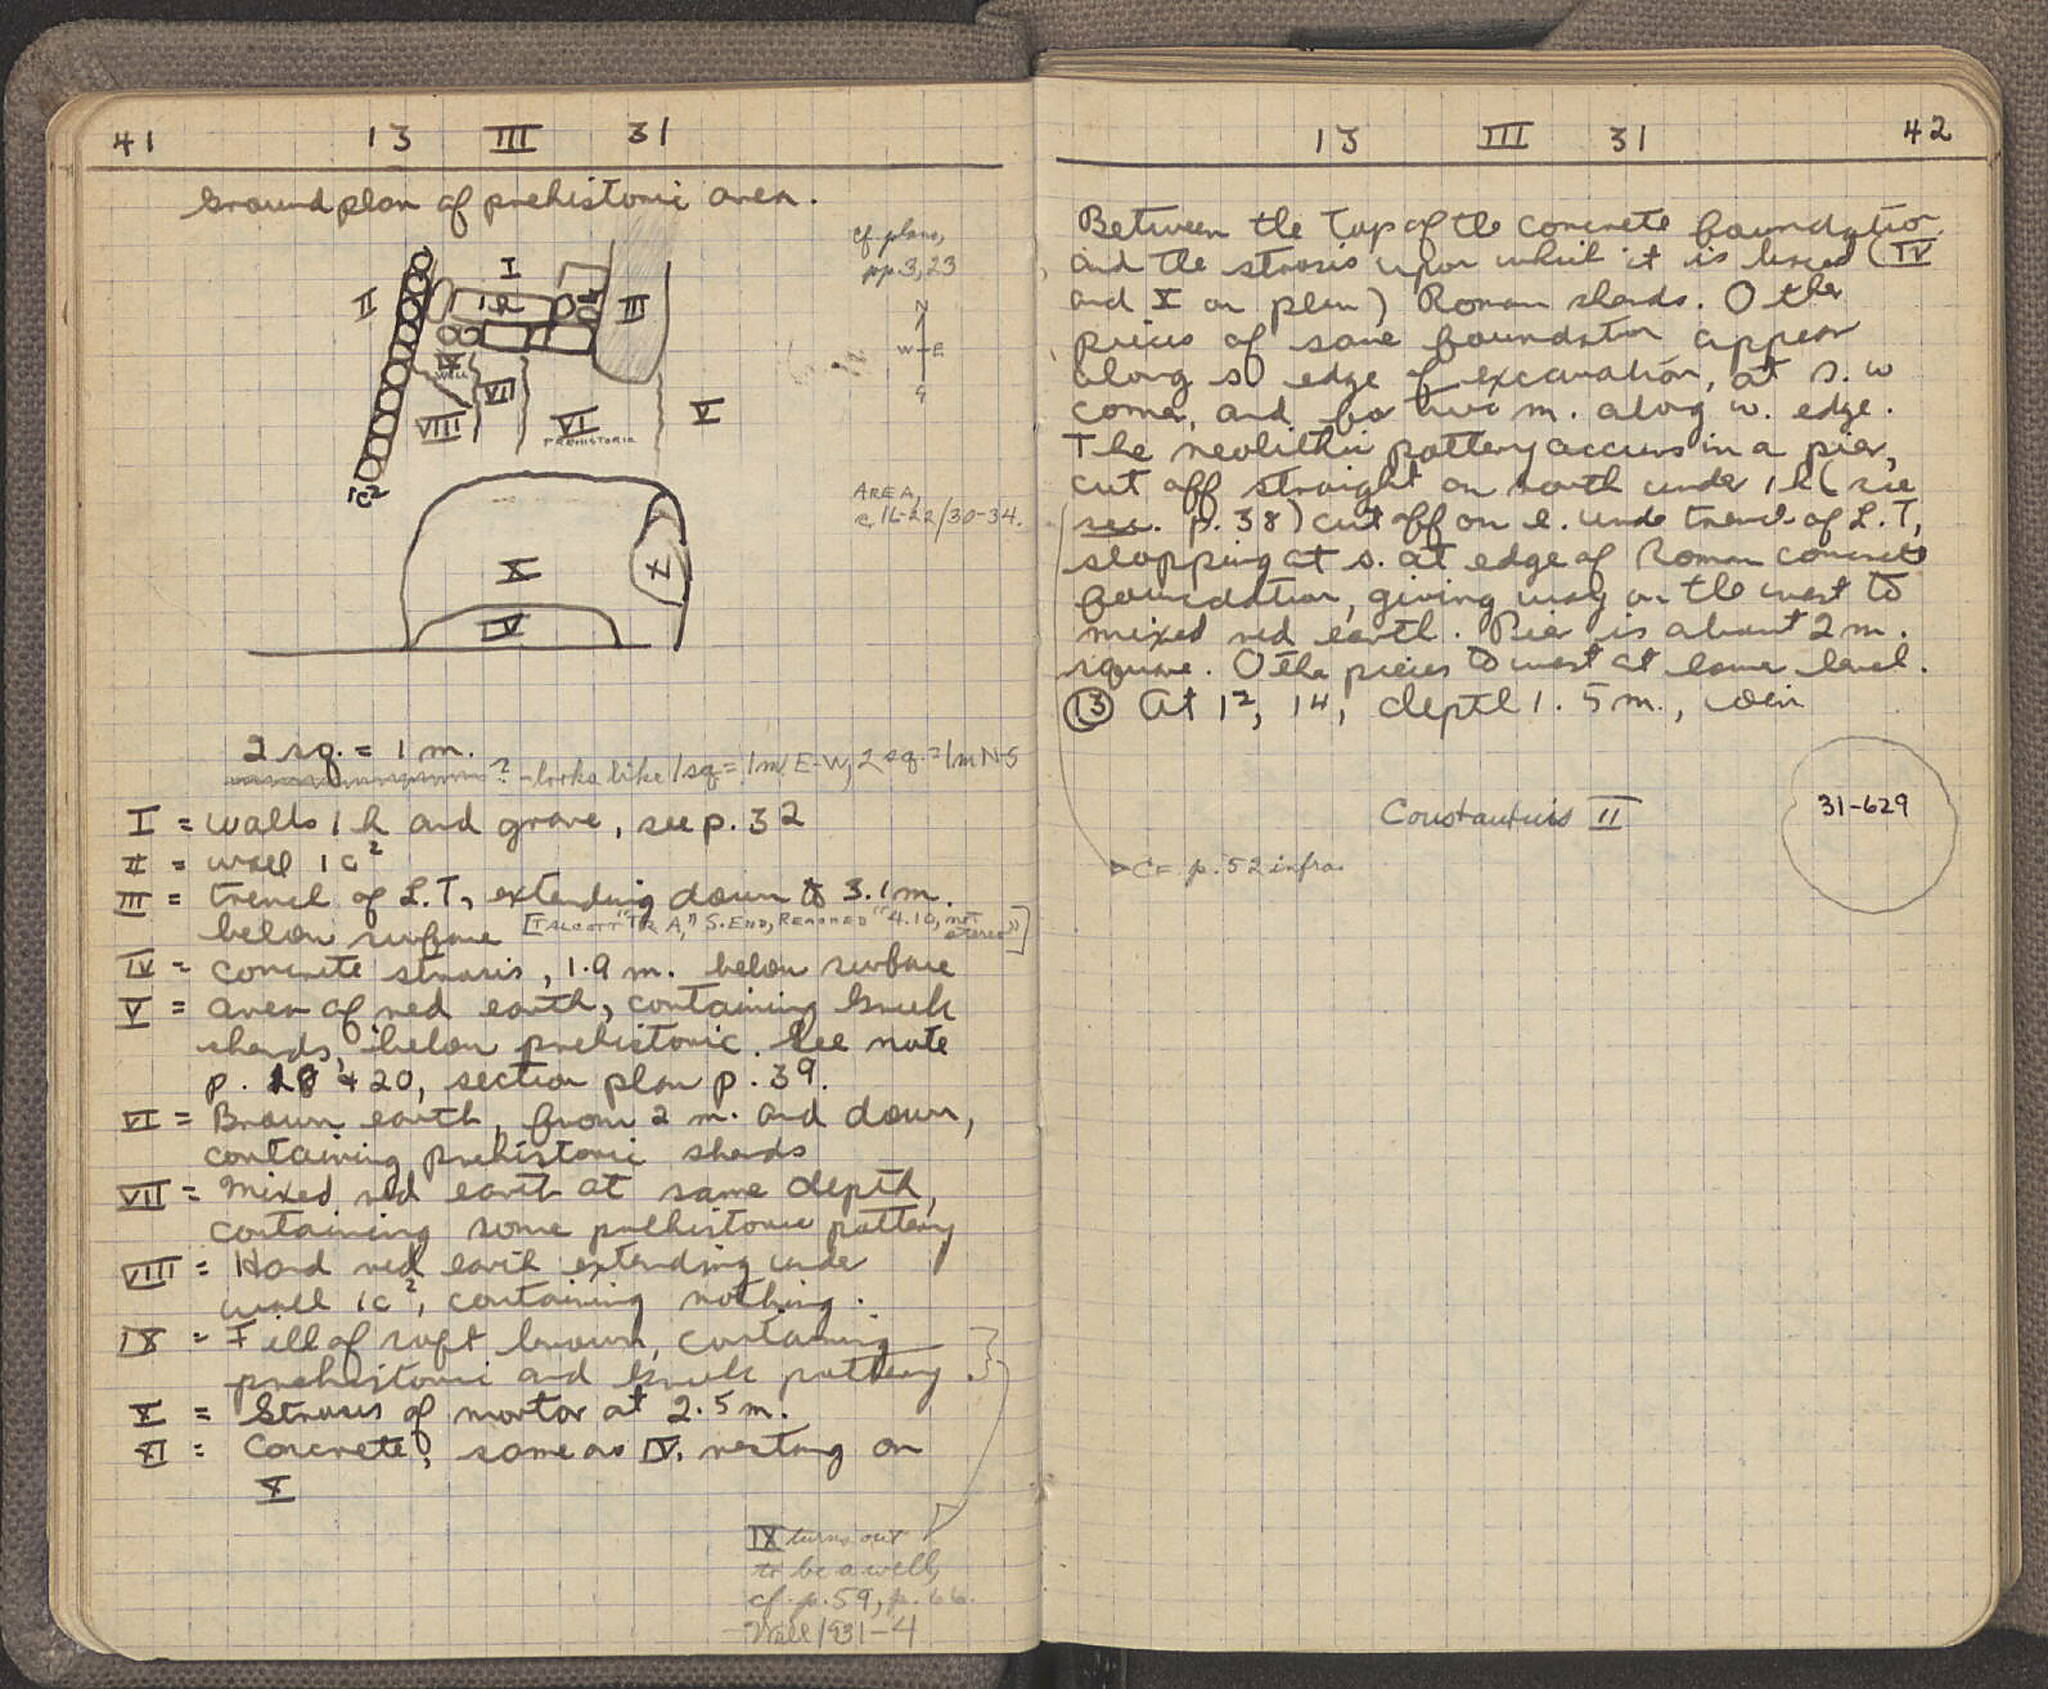 41 13 III 31
Ground plan of prehistoric area.
cf. plans,
pp. 3, 23
I
II
1h
III
N
W E
S
IX
WELL
VII
VIII
VI
PREHISTORIC
V
1c²
AREA,
c. 16-22/30-34.
X
XI
IV
2 sq. = 1 m.
? - looks like 1 sq = 1m E-W, 2 sq. = 1m N-S
I = walls 1h and grave, see p. 32
II = wall 1c²
III = trench of L.T., extending down to 3.1 m.
below surface [TALCOTT "TR A," S. END, REACHED "4.10, not
stereo"]
IV = concrete strosis, 1.9 m. below surface
V = area of red earth, containing Greek
sherds, below prehistoric. See note
p. 18 & 20, section plan p. 39.
VI = Brown earth, from 2 m. and down,
containing prehistoric sherds
VII = Mixed red earth at same depth,
containing some prehistoric pottery
VIII = Hard red earth extending under
wall 1c², containing nothing.
IX = Fill of soft brown, containing
prehistoric and Greek pottery.
X = Strosis of mortar at 2.5 m.
XI = Concrete, same as IV, resting on
X
IX turns out
to be a well,
cf. p. 59, p. 66.
Well 1931-4
13 III 31 42
Between the top of the concrete foundation
and the strosis upon which it is based (IV
and X on plan) Roman sherds. Other
pieces of same foundation appear
along so edge of excavation, at s. w
corner, and for two m. along w. edge.
The neolithic pottery occurs in a pier,
cut off straight on north under 1h (see
sec. p. 38) cut off on e. under trench of L.T,
stopping at s. at edge of Roman concrete
foundation, giving way on the west to
mixed red earth. Pier is about 2 m.
square. Other pieces to west at lower level.
13 At 12, 14, depth 1.5 m., coin
Constantius II
31-629
Cf. p. 52 infra.